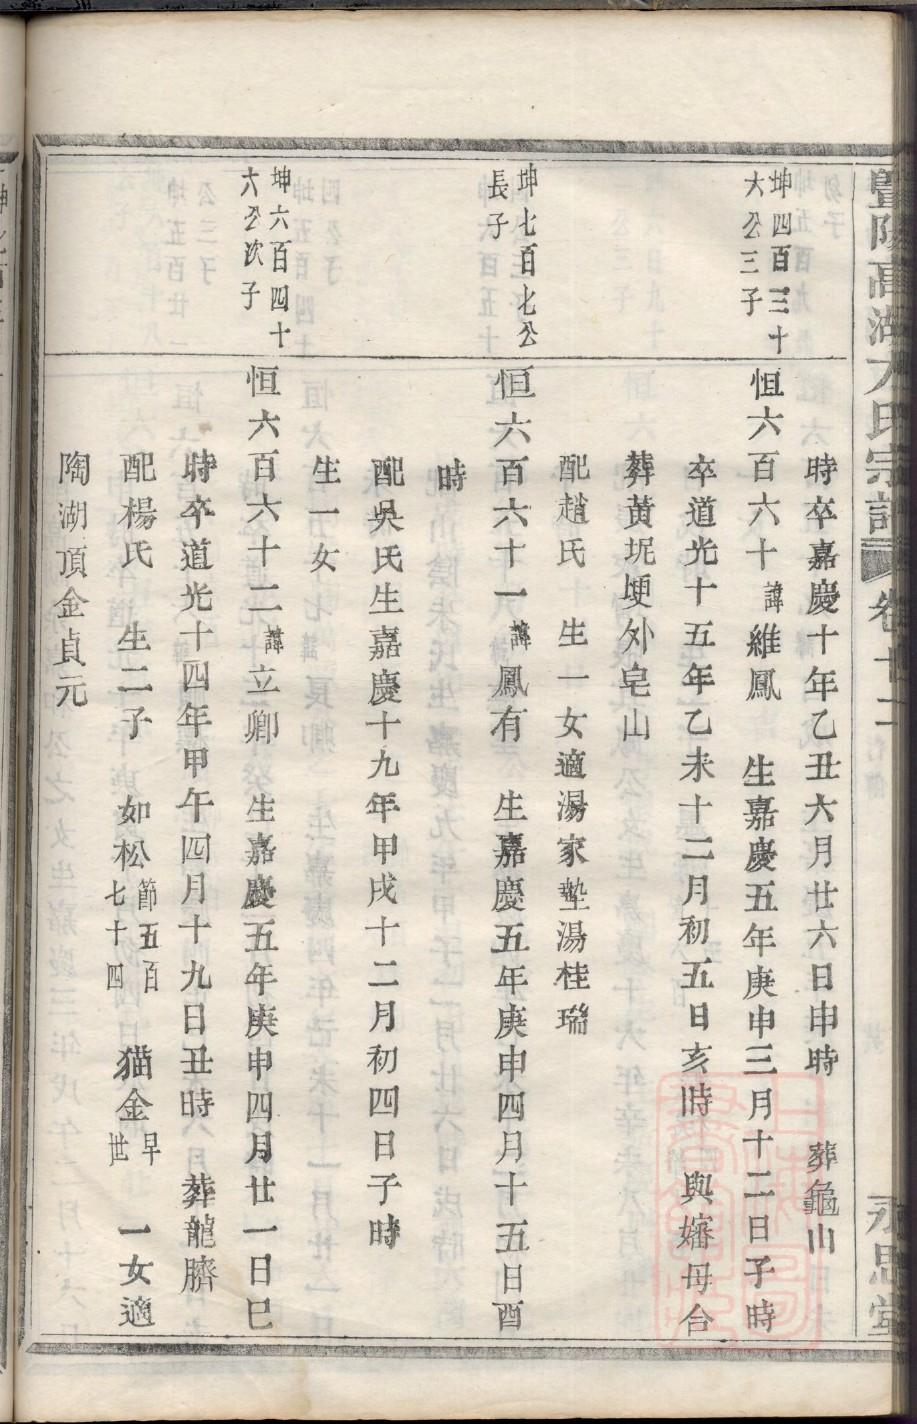 暨陽高湖尢氏宗譜 卷廿二 永思堂
時卒嘉慶十年乙丑六月廿六日申時 葬龜山
坤四百三十六公三子
恒六百六十諱維鳳 生嘉慶五年庚申三月十二日子時
卒道光十五年乙未十二月初五日亥時 與嬸母合
葬黄坭埂外皂山
配趙氏 生一女適湯家墊湯桂瑞
坤七百七公長子
恒六百六十一諱鳳有 生嘉慶五年庚申四月十五日酉
時
配吳氏生嘉慶十九年甲戌十二月初四日子時
生一女
坤六百四十六公次子
恒六百六十二諱立卿 生嘉慶五年庚申四月廿一日巳
時卒道光十四年甲午四月十九日丑時 葬龍臍
配楊氏 生二子 如松節五百七十四 猫金早世 一女適
陶湖頂金貞元